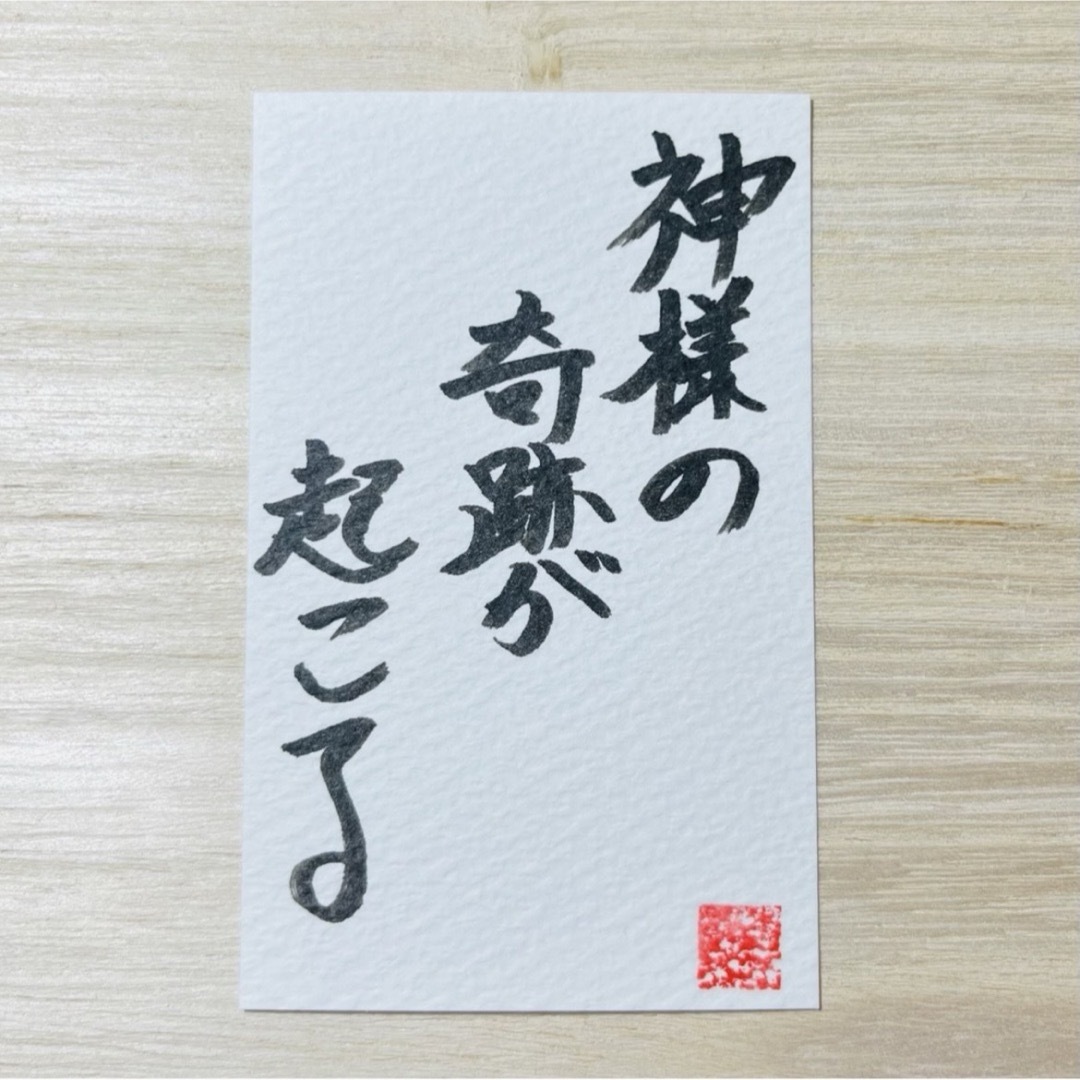 神様の
奇跡が
起こる